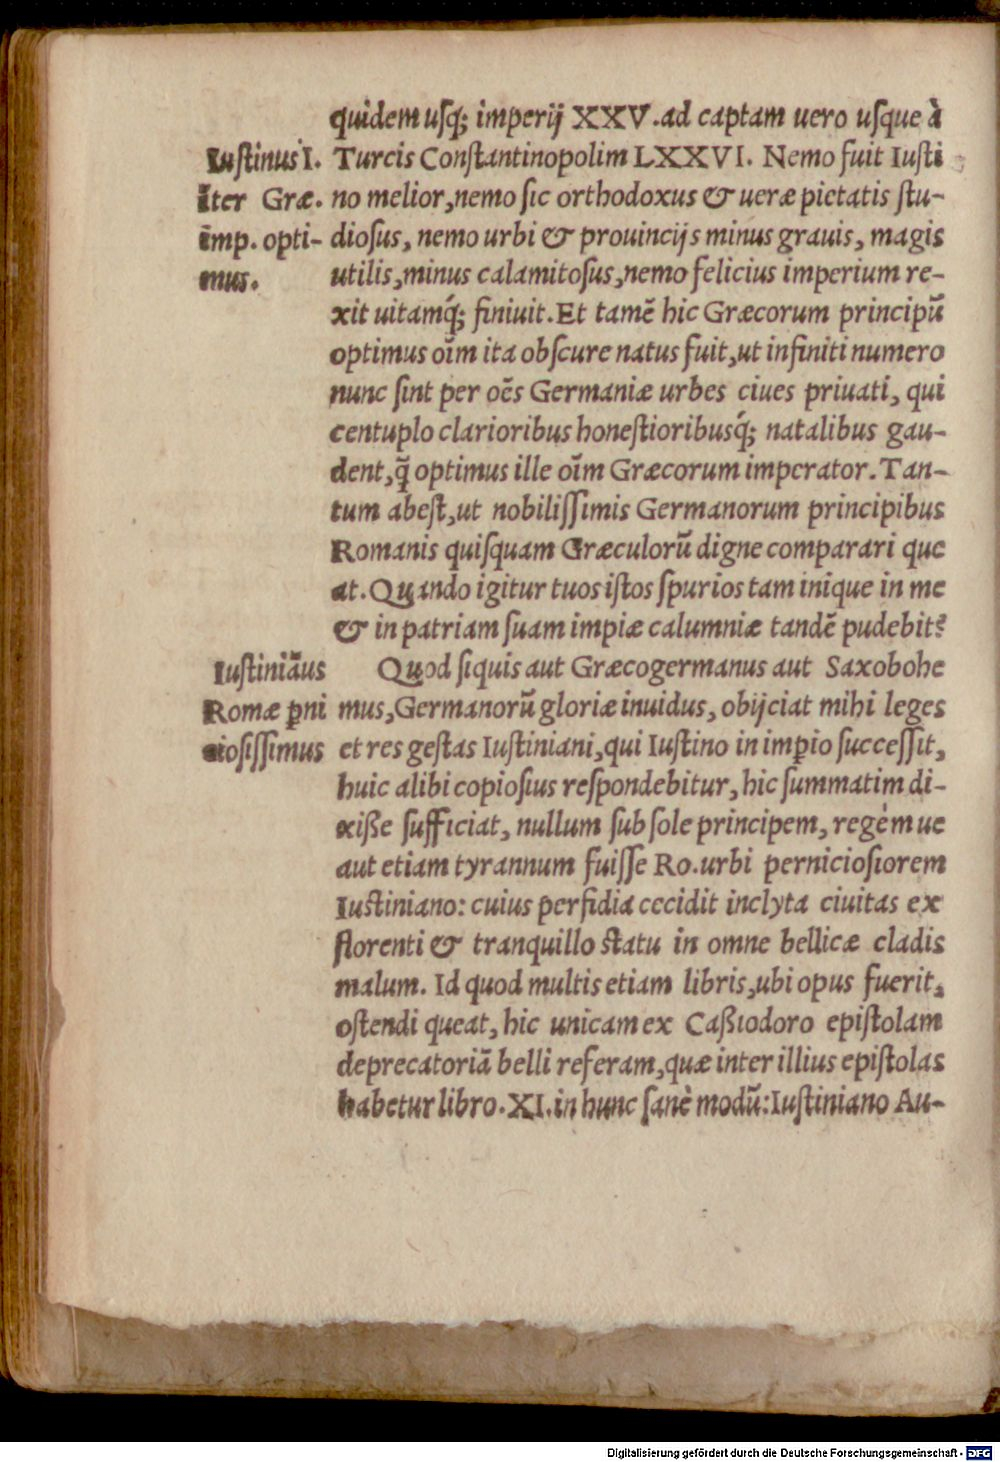 quidem uſq; imperij XXV. ad captam uero uſque à
Turcis Conſtantinopolim LXXVI. Nemo fuit Iuſti
no melior, nemo ſic orthodoxus & ueræ pietatis ſtu-
dioſus, nemo urbi & prouincijs minus grauis, magis
utilis, minus calamitoſus, nemo felicius imperium re-
xit uitamq́; finiuit. Et tamē hic Græcorum principū
optimus oīm ita obſcure natus fuit, ut infiniti numero
nunc ſint per oēs Germaniæ urbes ciues priuati, qui
centuplo clarioribus honeſtioribusq́; natalibus gau-
dent, q̄ optimus ille oīm Græcorum imperator. Tan-
tum abeſt, ut nobiliſſimis Germanorum principibus
Romanis quiſquam Græculorū digne comparari que
at. Quando igitur tuos iſtos ſpurios tam inique in me
& in patriam ſuam impiæ calumniæ tandē pudebit?
Quod ſiquis aut Græcogermanus aut Saxobohe
mus, Germanorū gloriæ inuidus, obijciat mihi leges
et res geſtas Iuſtiniani, qui Iuſtino in imꝑio ſucceſſit,
huic alibi copioſius reſpondebitur, hic ſummatim di-
xiße ſufficiat, nullum ſub ſole principem, regèm ue
aut etiam tyrannum fuiſſe Ro. urbi pernicioſiorem
Iuſtiniano: cuius perfidia cecidit inclyta ciuitas ex
florenti & tranquillo ſtatu in omne bellicæ cladis
malum. Id quod multis etiam libris, ubi opus fuerit,
oſtendi queat, hic unicam ex Caßiodoro epiſtolam
deprecatoriā belli referam, quæ inter illius epiſtolas
habetur libro. XI. in hunc ſanè modū: Iuſtiniano Au-
Iuſtinus I.
īter Græ.
imp. opti-
mus.
Iuſtiniāus
Romæ ꝑni
cioſiſſimus
Digitalisierung gefördert durch die Deutsche Forschungsgemeinschaft - DFG